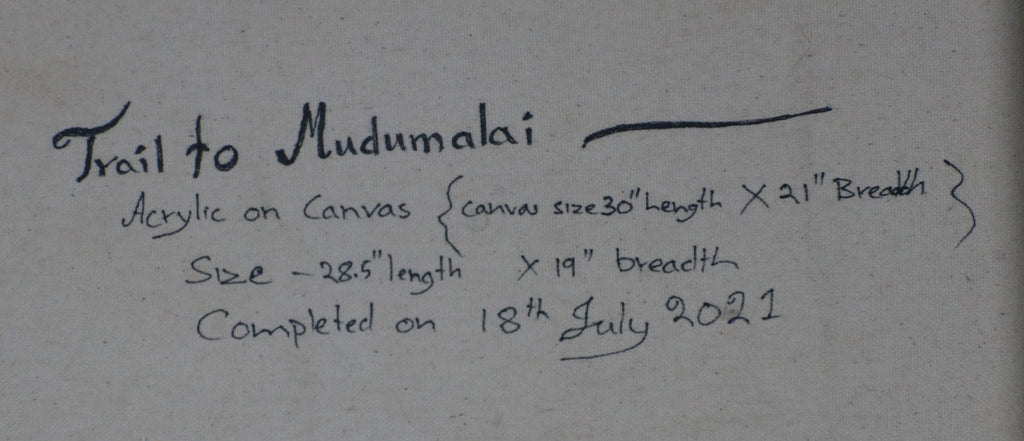 Trail to Mudumalai —
Acrylic on Canvas {canvas size 30" Length X 21" Breadth}
Size - 28.5" length X 19" breadth
Completed on 18th July 2021